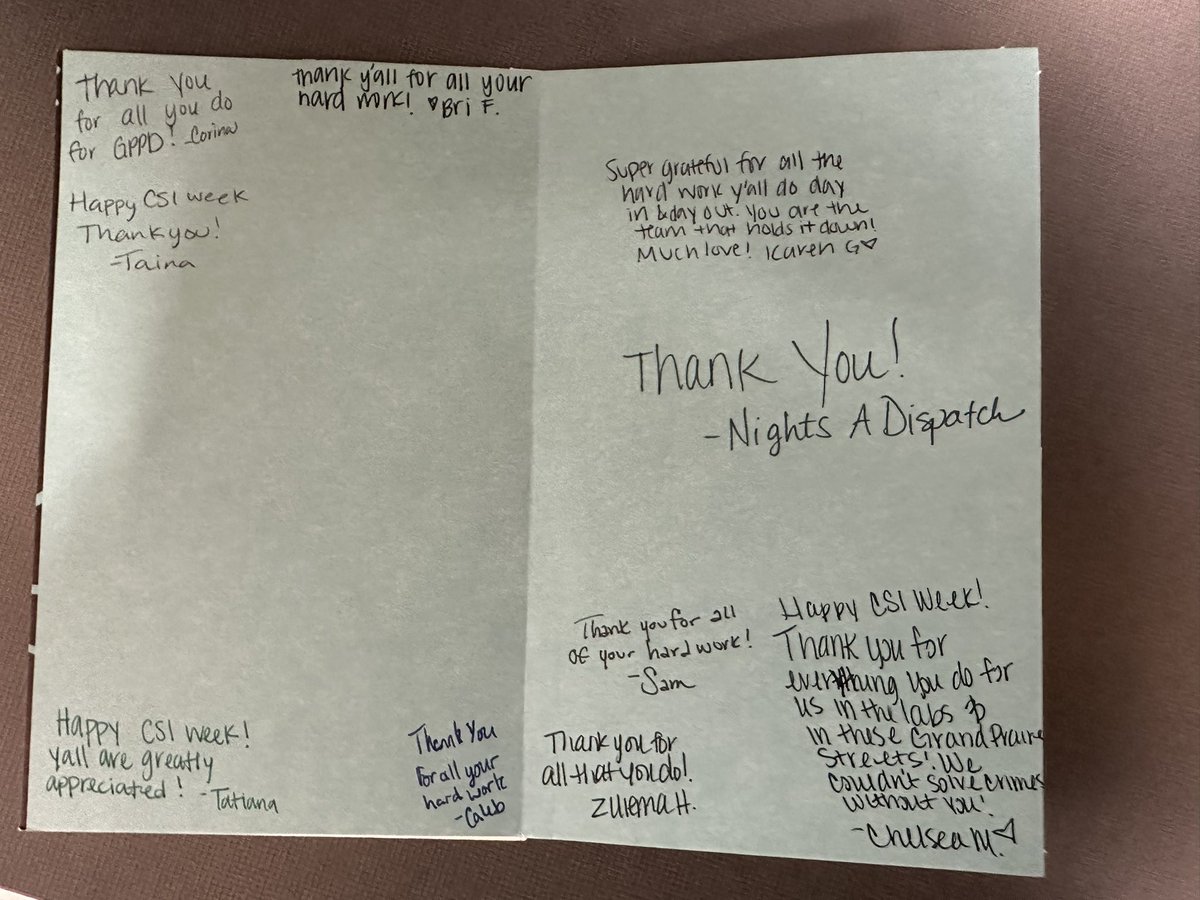 Thank you
for all you do
for GPPD! -Corina
Thank y'all for all your
hard work! ♡Bri F.
Happy CSI week
Thank you!
-Taina
Happy CSI week!
yall are greatly
appreciated! -Tatiana
Thank You
For all your
hard work
-Caleb
Super grateful for all the
hard work y'all do day
in & day out. You are the
team that holds it down!
Much love! Karen G♡
Thank You!
-Nights A Dispatch
Thank you for all
of your hard work!
-Sam
Thank you for
all that you do!
Zulema H.
Happy CSI Week!
Thank you for
everything you do for
us in the labs &
in these Grand Prairie
Streets! We
couldn't solve crimes
without you!
-Chelsea M.♡